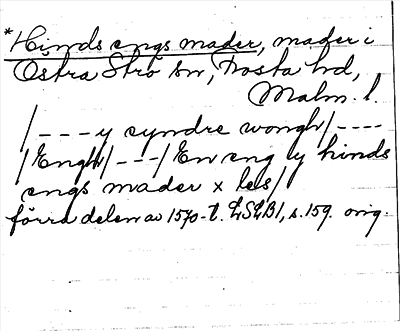 *Hinds engs mader, mader i
Östra Strö sn, Frosta hd,
Malm. l.
/---y syndre wongh/----
/Engh/---/En eng y hinds
engs mader x les/
förra delen av 1570-t. LSLB1, s.159. orig.